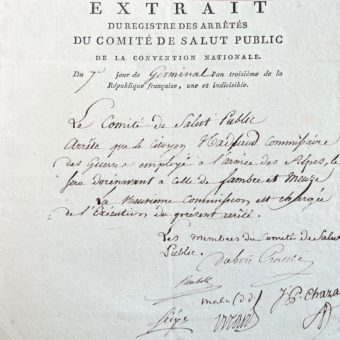 EXTRAIT
DU REGISTRE DES ARRÊTÉS
DU COMITÉ DE SALUT PUBLIC
DE LA CONVENTION NATIONALE.
Du 7e jour de Germinal l'an troisième de la
République française, une et indivisible.
Le Comité de Salut Public
Arrête que le citoyen Commissaire
des Guerres employé à l'armée des Alpes, le
sera dorénavant à celle de Sambre et Meuze
La Neuvieme Commission est chargée
de l'Exécution du présent arrêté.
Les membres du comité de Salut
Public.
J. P. Chaza